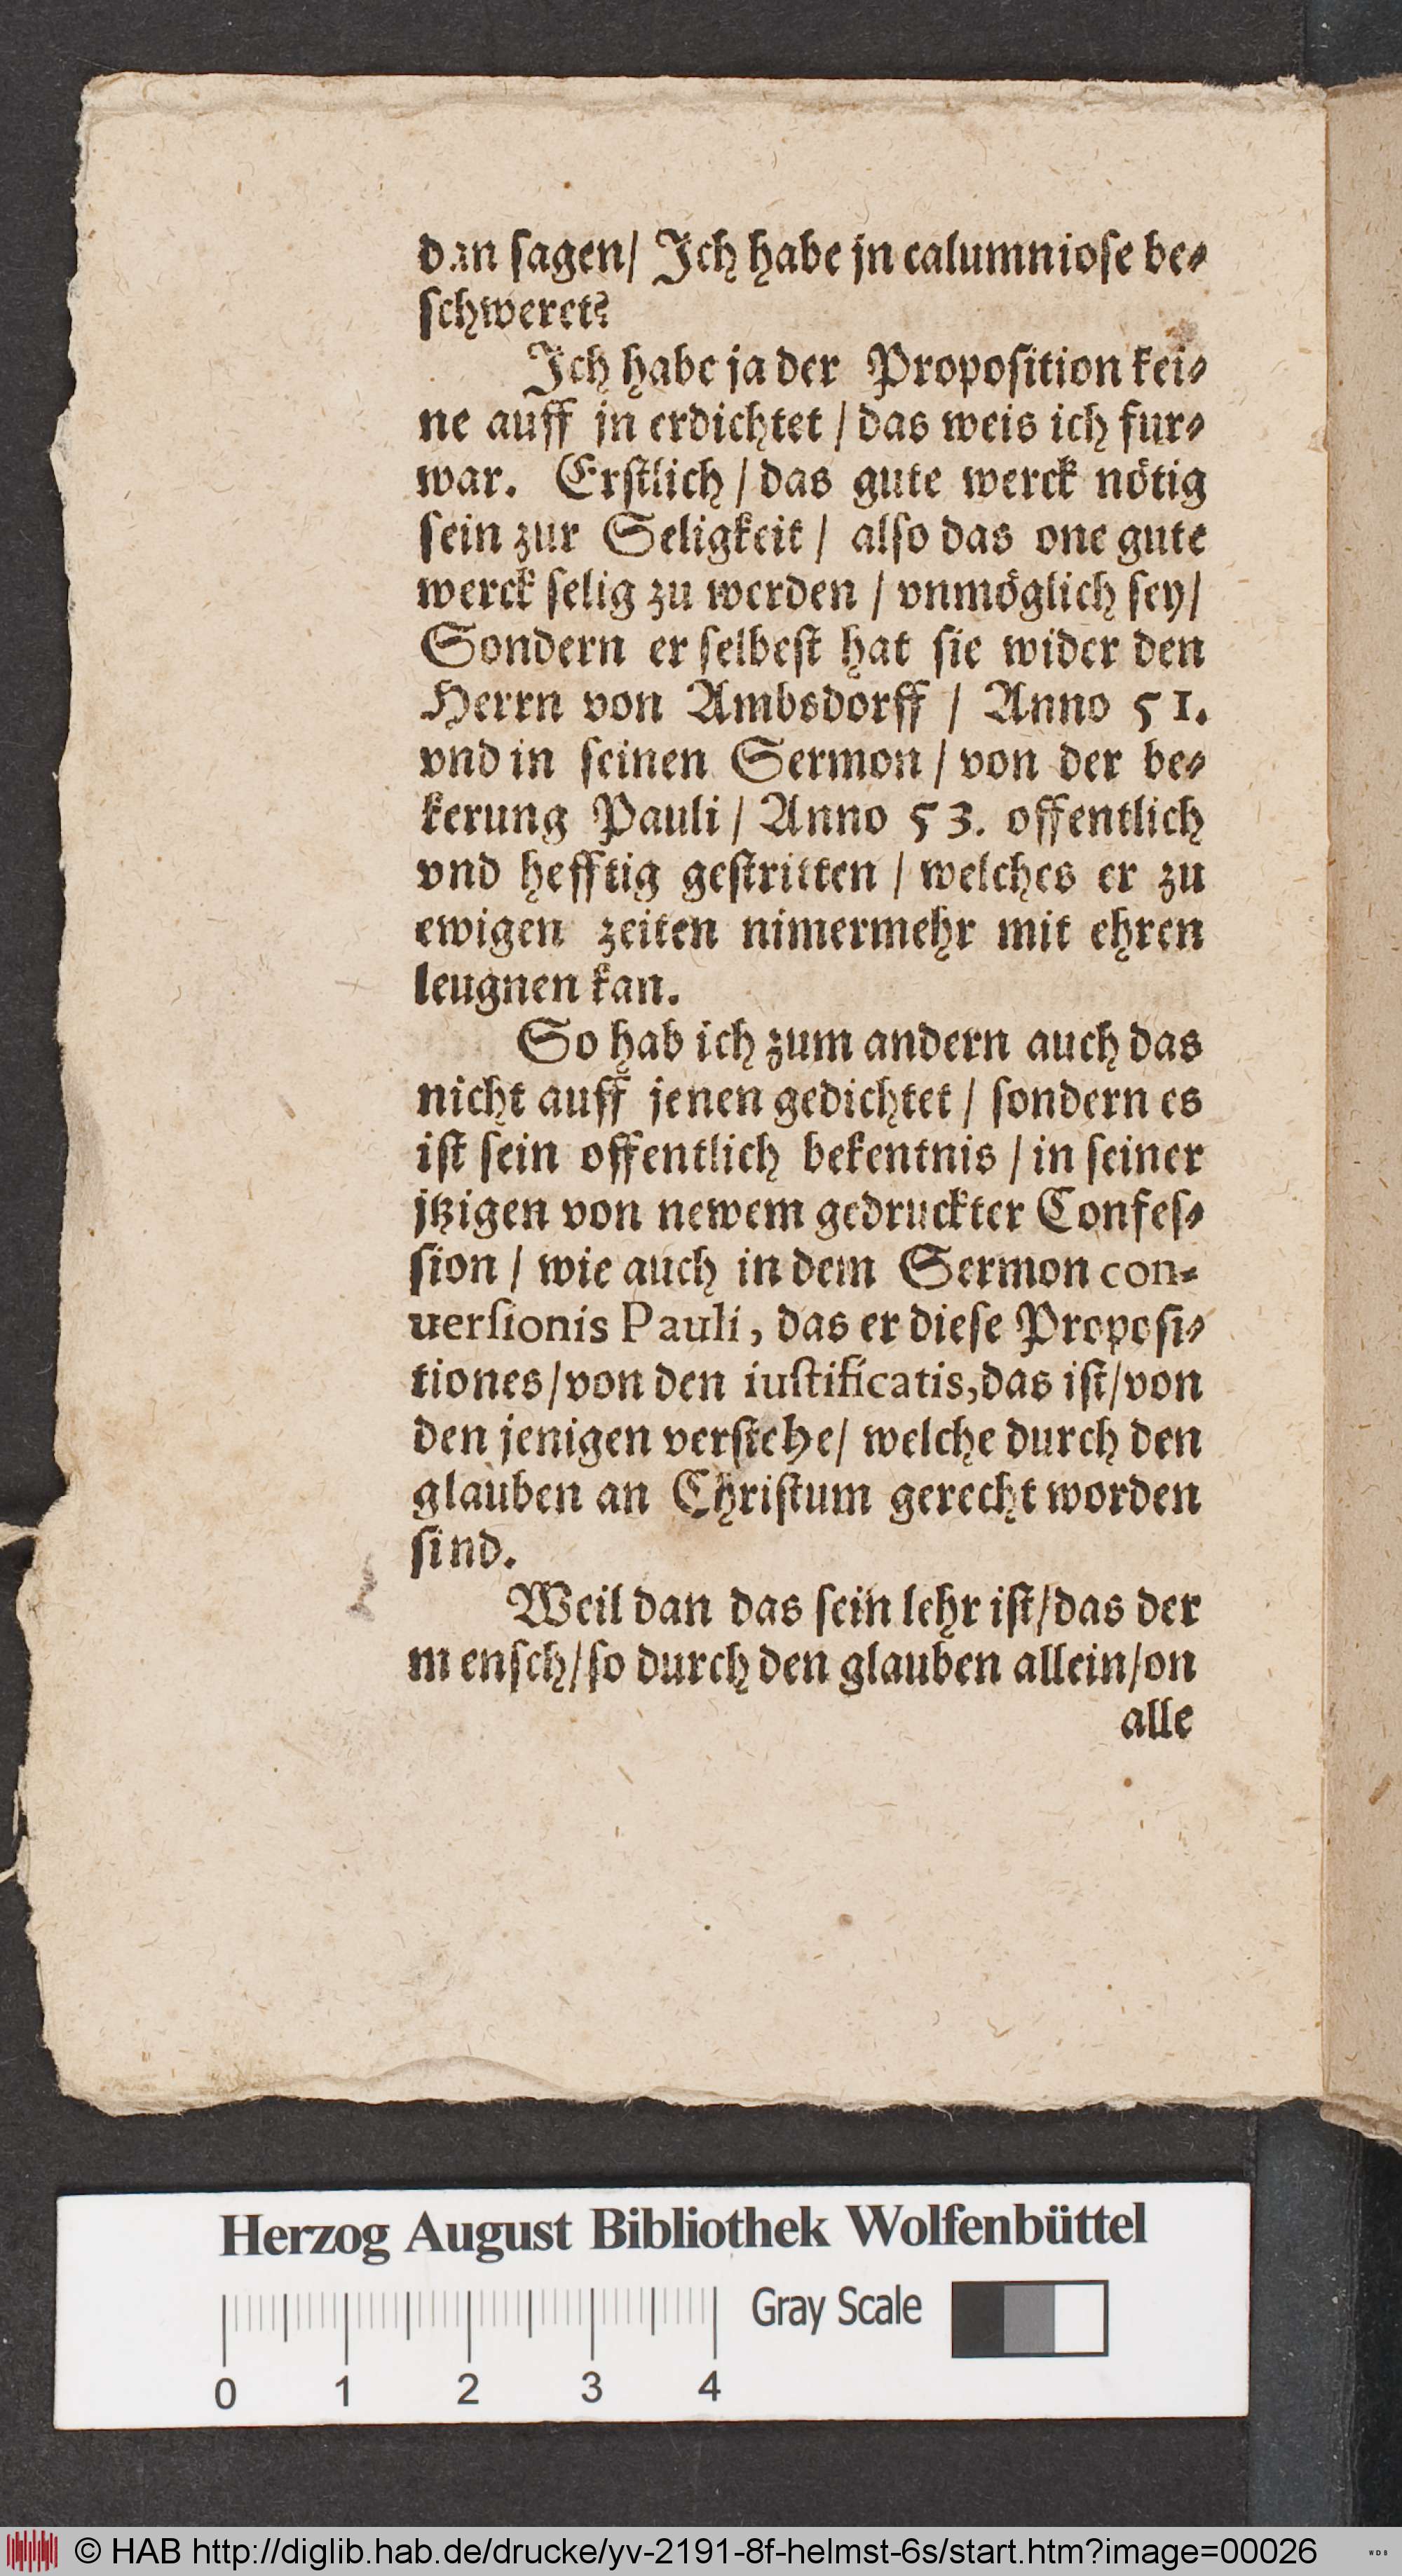 dan ſagen/ Ich habe jn calumnioſe be⸗
ſchweret?
Ich habe ja der Propoſition kei⸗
ne auff jn erdichtet / das weis ich fur⸗
war. Erſtlich / das gute werck nötig
ſein zur Seligkeit / alſo das one gute
werck ſelig zu werden / vnmöglich ſey/
Sondern er ſelbeſt hat ſie wider den
Herrn von Ambsdorff / Anno 51.
vnd in ſeinen Sermon / von der be⸗
kerung Pauli / Anno 53. offentlich
vnd hefftig geſtritten / welches er zu
ewigen zeiten nimermehr mit ehren
leugnen kan.
So hab ich zum andern auch das
nicht auff jenen gedichtet / ſondern es
iſt ſein offentlich bekentnis / in ſeiner
jtzigen von newem gedruckter Confeſ⸗
ſion / wie auch in dem Sermon con⸗
uerſionis Pauli, das er dieſe Propoſi⸗
tiones/von den iuſtificatis,das iſt/von
den jenigen verſtehe/ welche durch den
glauben an Chriſtum gerecht worden
ſind.
Weil dan das ſein lehr iſt/das der
menſch/ſo durch den glauben allein/on
alle
Herzog August Bibliothek Wolfenbüttel
Gray Scale
0 1 2 3 4
© HAB http://diglib.hab.de/drucke/yv-2191-8f-helmst-6s/start.htm?image=00026